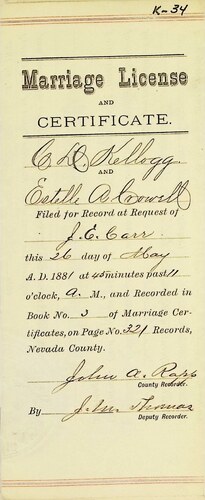 K-34
Marriage License
AND
CERTIFICATE.
C D Kellogg
AND
Estelle A Crowell
Filed for Record at Request of
J. E. Carr
this 26 day of May
A. D. 1881 at 45 minutes past 11
o'clock, A. M., and Recorded in
Book No. 3 of Marriage Cer-
tificates, on Page No. 321 Records,
Nevada County.
John A. Rapp
County Recorder.
By J. M. Thomas
Deputy Recorder.